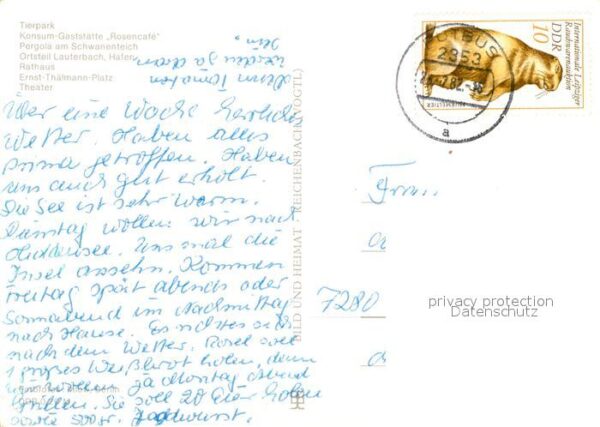 Tierpark
Konsum-Gaststätte „Rosencafé"
Pergola am Schwanenteich
Ortsteil Lauterbach, Hafen
Rathaus
Ernst-Thälmann-Platz
Theater
Über eine Woche herrliches
Wetter. Haben alles
prima getroffen. Haben
uns auch gut erholt.
Die See ist sehr warm.
Dienstag wollen wir nach
Hiddensee. Uns mal die
Insel ansehn. Kommen
Freitag spät abends oder
Sonnabend im Nachmittag
nach Hause. Es richtet sich
nach dem Wetter. soll
1 großes Weißbrot holen, denn
wir wollen ja Montag abend
grillen. Sie soll 20 Eier holen
sowie 500 gr. Jagdwurst.
Tomaten
werden ja drin
sein.
BILD UND HEIMAT REICHENBACH (VOGTL)
PUTBUS
2353
a
Internationale Leipziger
Rauchwarenauktion
DDR
10
Frau
7280
privacy protection
Datenschutz